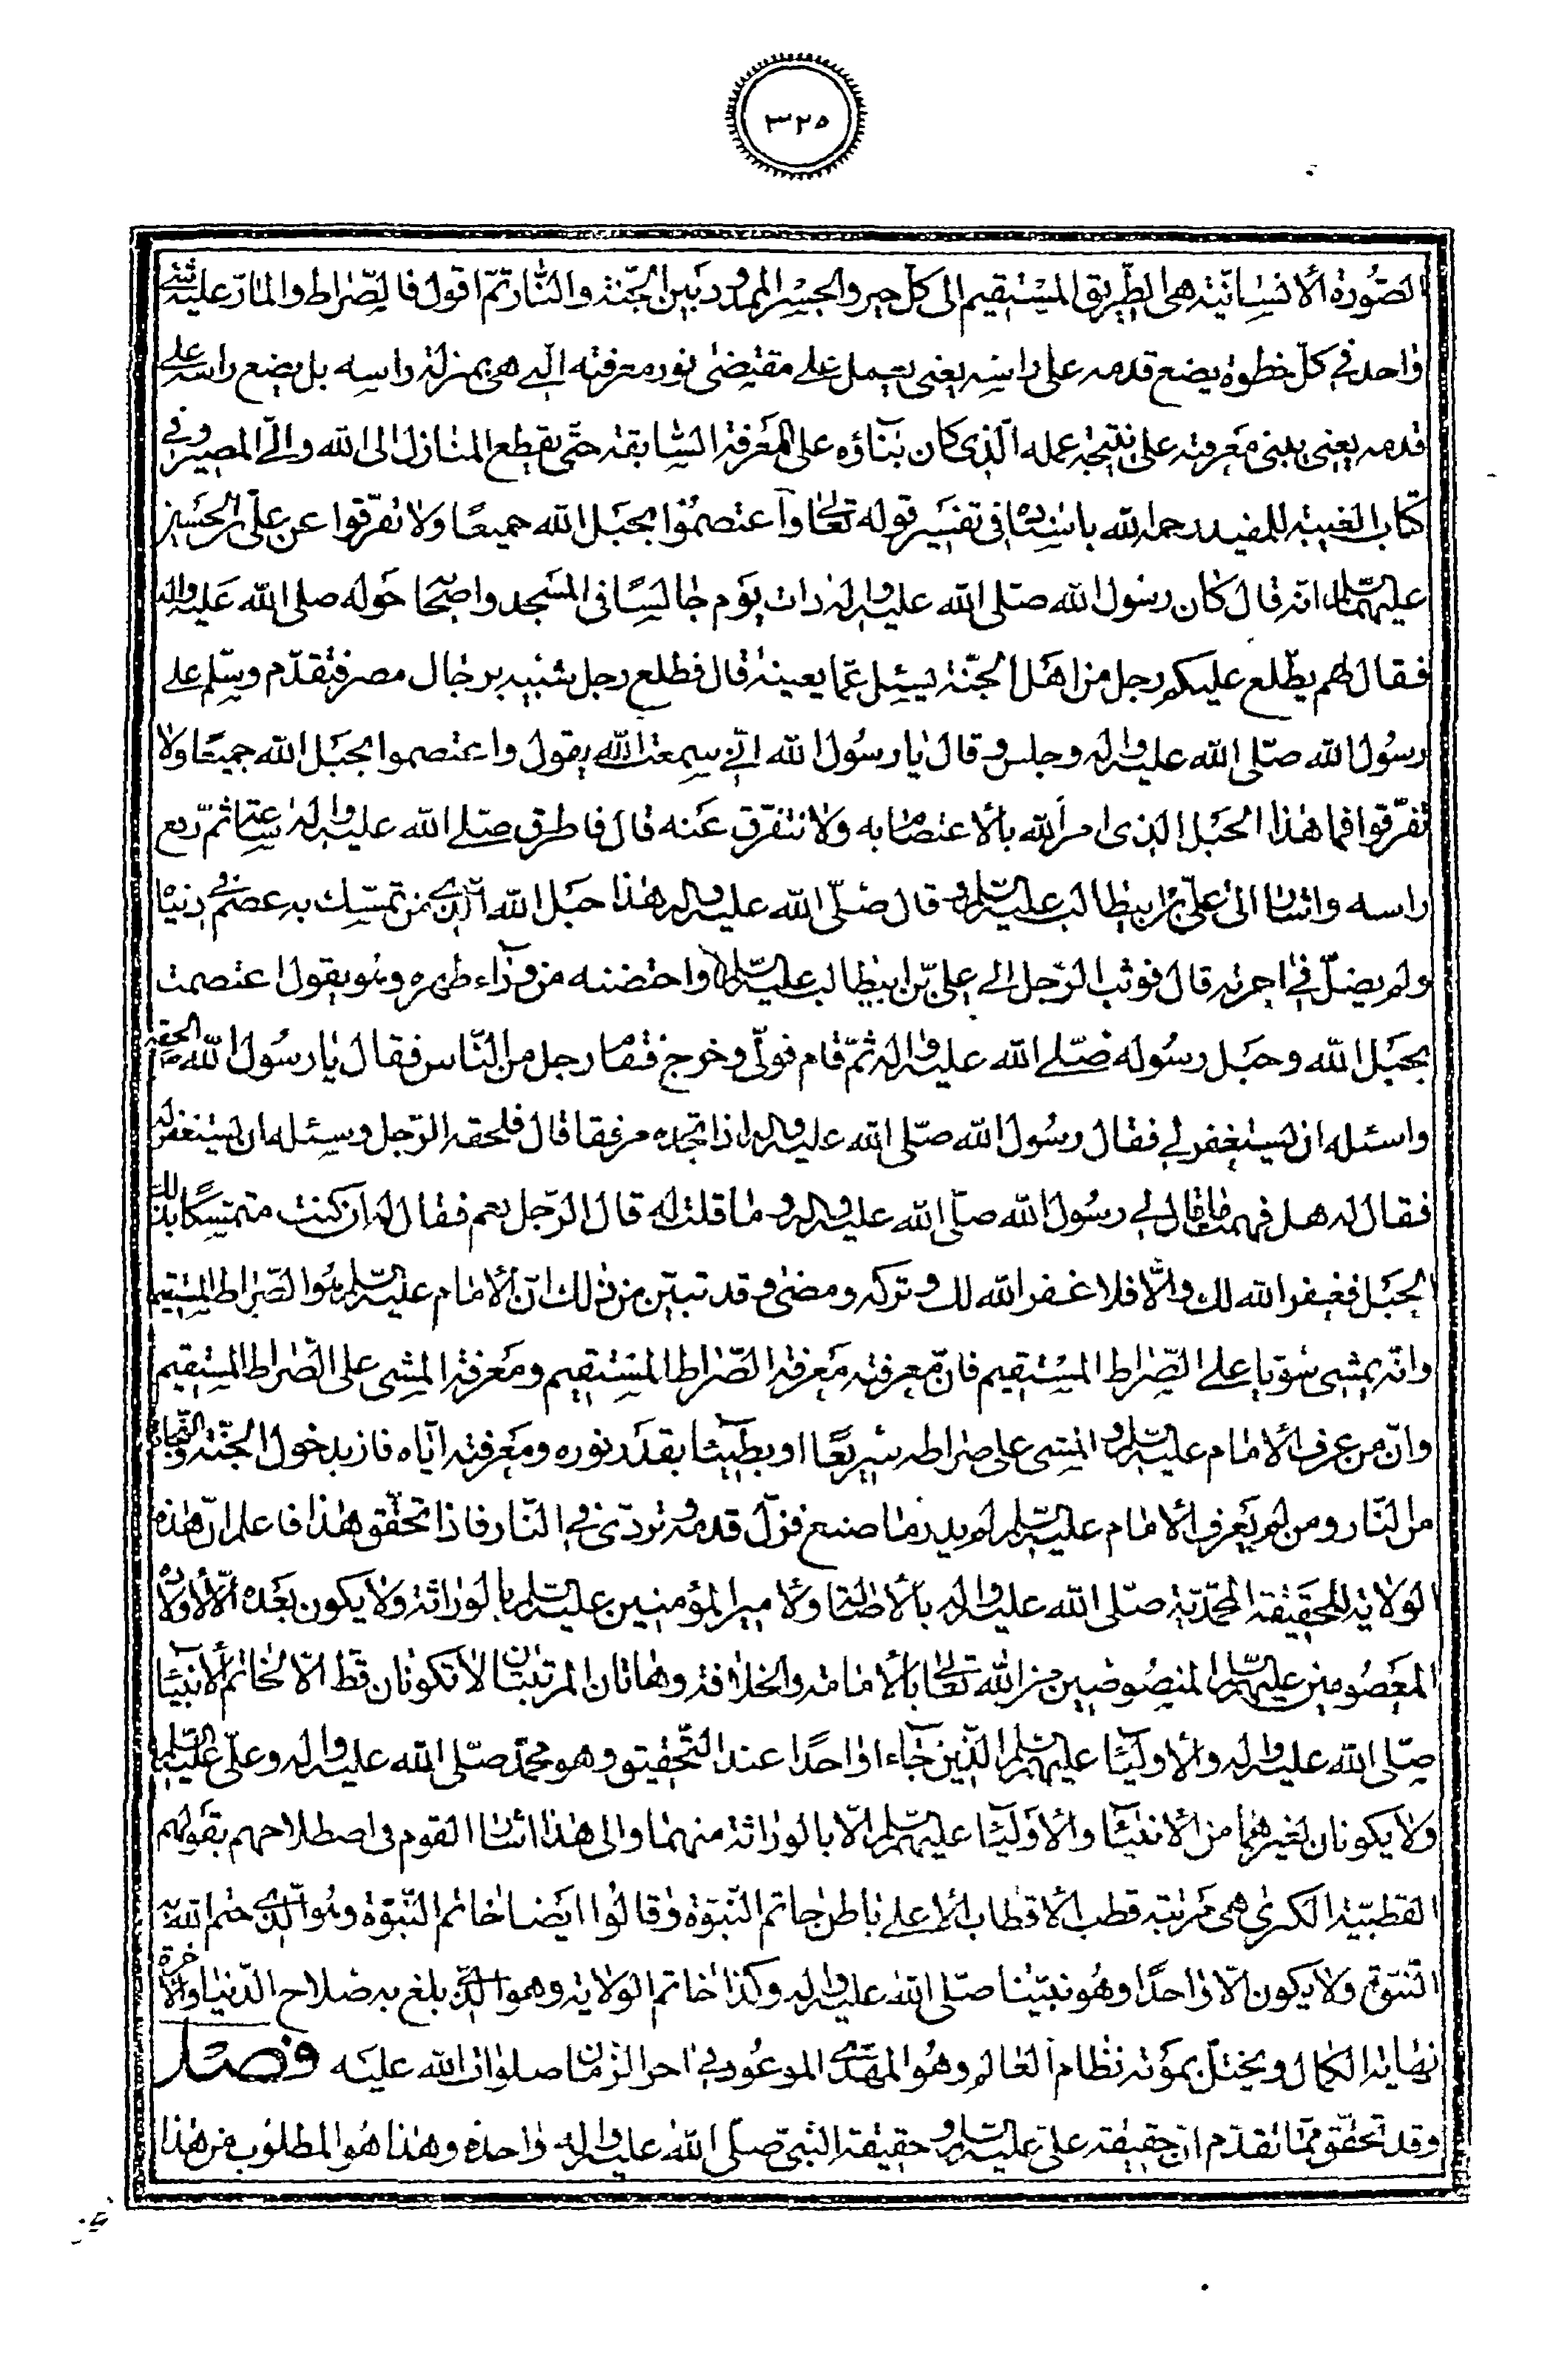 ٣٢٥
الصّورة الانسانيّة هى الطّريق المستقيم الى كلّ خير والجسر الممدود بين الجنّة والنّار ثمّ اقول فالصّراط والمارّ عليه شئ
واحد فى كلّ خطوة يضع قدمه على راسه يعنى يعمل على مقتضى نور معرفته الّتى هى بمنزلة راسه بل يضع راسه على
قدمه يعنى يبنى معرفته على نتيجة عمله الّذى كان بناؤه على المعرفة السّابقة حتّى يقطع المنازل الى الله والى الله المصير وفى
كتاب الغيبة للمفيد رحمه الله باسناده فى تفسير قوله تعالى واعتصموا بحبل الله جميعًا ولا تفرّقوا عن علىّ بن الحسين
عليهما السّلام انّه قال كان رسول الله صلّى الله عليه واله ذات يوم جالسًا فى المسجد واصحابه حوله صلى الله عليه واله
فقال لهم يطّلع عليكم رجل من اهل الجنّة يسئل عمّا يعينه قال فطلع رجل شبيه برجال مصر فتقدّم وسلّم على
رسول الله صلّى الله عليه واله وجلس وقال يا رسول الله انّى سمعت الله يقول واعتصموا بحبل الله جميعًا ولا
تفرّقوا فما هذا الحبل الذى امر الله بالاعتصام به ولا نتفرّق عنه قال فاطرق صلى الله عليه واله ساعة ثمّ رفع
راسه واشار الى علىّ بن ابيطالب عليه السّلم وقال صلّى الله عليه واله هذا حبل الله الّذى من تمسّك به عصم فى دنياه
ولم يضلّ فى اخرته قال فوثب الرّجل الى علىّ بن ابيطالب عليه السّلام واحتضنه من وراء ظهره وهو يقول اعتصمت
بحبل الله وحبل رسوله صلى الله عليه واله ثمّ قام فولّى وخرج فقام رجل من النّاس فقال يا رسول الله الحقه
واسئله ان يستغفر لى فقال رسول الله صلّى الله عليه واله اذا تجده مرفقا قال فلحقه الرّجل وسئله ان يستغفر له
فقال له هل فهمت ما قال لى رسول الله صلّى الله عليه واله وما قلت له قال الرّجل نعم فقال له ان كنت متمسّكًا بذلك
الحبل فغفر الله لك والّا فلا غفر الله لك وتركه ومضى وقد تبيّن من ذلك انّ الامام عليه السّلم هو الصّراط المستقيم
وانّه يمشى سويّا على الصّراط المستقيم فانّ معرفته معرفة الصّراط المستقيم ومعرفة المشى على الصّراط المستقيم
وانّ من عرف الامام عليه السّلم والمشى على صراطه سريعًا او بطيئا بقدر نوره ومعرفته ايّاه فاز بدخول الجنّة والنّجاة
من النّار ومن لم يعرف الامام عليه السّلم لم يدر ما صنع فزلّ قدمه وتردّى فى النّار فاذا تحقّق هذا فاعلم انّ هذه
الولاية للحقيقة المحمّديّة صلّى الله عليه واله بالاصالة ولامير المؤمنين عليه السّلم بالوراثة ولا يكون بعده الّا لاولاده
المعصومين عليهم السّلم المنصوصين من الله تعالى بالامامة والخلافة وهاتان المرتبتان لا تكونان قطّ الّا لخاتم الانبياء
صلّى الله عليه واله والاولياء عليهم السّلم الّذين جاءا واحدًا عند التّحقيق وهو محمّد صلّى الله عليه واله وعلىّ عليه السّلم
ولا يكونان لغيرهما من الانبياء والاولياء عليهم السّلم الّا بالوراثة منهما والى هذا اشار القوم فى اصطلاحهم بقولهم
القطبيّة الكبرى هى مرتبة قطب الاقطاب الاعلى باطن خاتم النّبوّة وقالوا ايضا خاتم النّبوّة وهو الّذى ختم الله به
النّبوّة ولا يكون الّا واحدًا وهو نبيّنا صلّى الله عليه واله وكذا خاتم الولاية وهو الّذى بلغ به صلاح الدّنيا والاخرة
نهاية الكمال ويختلّ بموته نظام العالم وهو المهدى الموعود فى اخر الزمان صلوات الله عليه فصل
وقد تحقّق ممّا تقدّم انّ حقيقة علىّ عليه السّلم وحقيقة النّبىّ صلّى الله عليه واله واحدة وهذا هو المطلوب من هذا